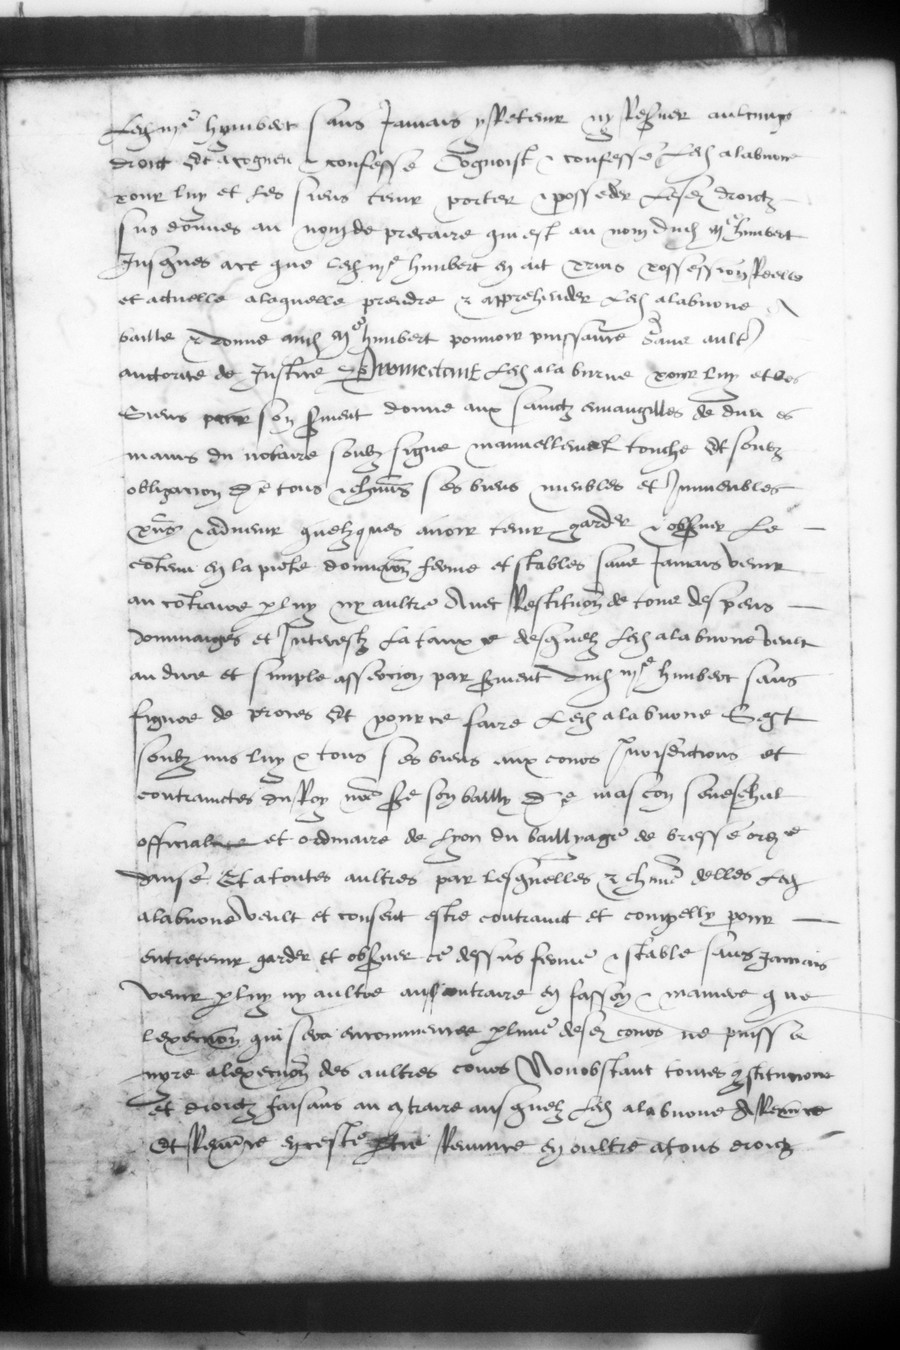 Led me humbert sans Jamais y Retenir ny Reserver aulcungs
droict Et a cogneu & confesse Cognoist & confesse Led alabuone
pour luy et les siens tenir porter & posseder Lesd droictz
sus donnes au nom de precaire qui est au nom dud me humbert
Jusques a ce que led me humbert en ait prins possession Reelle
et actuelle a laquelle prendre & apprehender Led alabuone A
baille & donne aud me humbert pouvoir puissance sans aultre
auctorite de Justice Promectant Led alabuone pour luy et les
Siens par son serment donne aux sainctz euuangilles de dieu es
mains du notaire soubz signe manuellement touche Et soubz
obligation De tous & chuns ses biens meubles et Immeubles
pns & advenir quelzques avoir tenir garder & observer Le
contenu en la pnte donnation ferme et stables sans Jamais venir
au contraire p luy ny aultre Avec Restitution de tous despens
dommaiges et Interestz La taux desquelz Led alabuone veult
au dire et simple assercion par serment dud me humbert sans
figure de proces Et pour ce faire Led alabuone Sest
soubz mis luy & tous ses biens aux cours Jurisdictions et
contrainctes du Roy nre sre son bailly De mascon seneschal
officialite et ordinaire de Lyon du bailliage de bresse
Et a toutes aultres par lesquelles & chune delles Led
alabuone veult et consent estre contrainct et compelly pour
entretenir garder et observer ce dessus ferme & stable sans Jamais
venir p luy ny aultre au contraire en fasson & maniere que
lexecution qui sera encommencee p lune desd cours ne puisse
nyre a lexecution des aultres cours Nonobstant toutes constitucions
et droictz faisans au contraire ausquelz Led alabuone A Renonce
Et Renonce en ceste Renonce en oultre a tous droictz